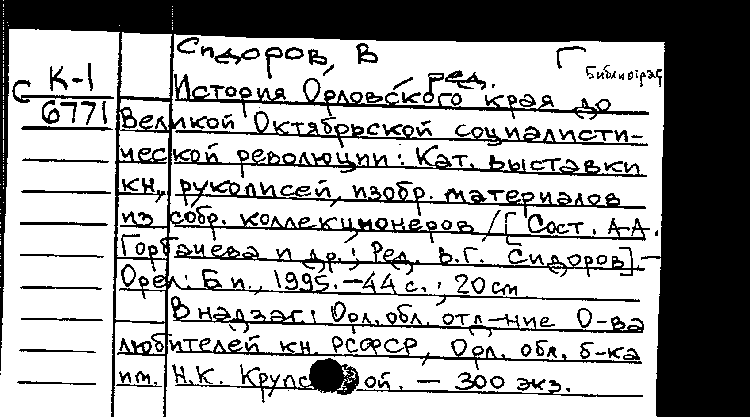 Сидоров, В
Библиограф
ред.
С К-1
6771
История Орловского края до
Великой Октябрьской социалисти-
ческой революции: Кат. выставки
кн., рукописей, изобр. материалов
из собр. коллекционеров / [Сост. А.А.
Горбачева и др.; Ред. В.Г. Сидоров] —
Орел: Б.и., 1995. — 44 с.; 20 см
В надзаг.: Орл. обл. отд-ние О-ва
любителей кн. РСФСР, Орл. обл. б-ка
им. Н.К. Крупской. — 300 экз.